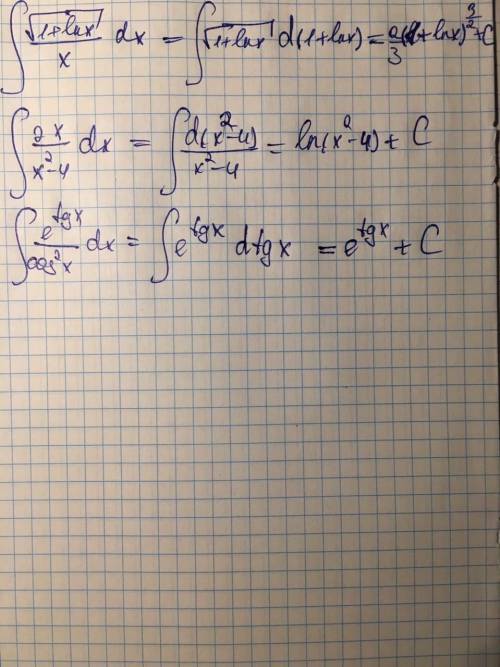 ∫ √(1+lnx)/x dx = ∫ √(1+lnx) d(1+lnx) = 2/3 (1+lnx)^(3/2) + C
∫ 2x/(x²-4) dx = ∫ d(x²-4)/(x²-4) = ln(x²-4) + C
∫ e^(tgx)/cos²x dx = ∫ e^(tgx) dtgx = e^(tgx) + C